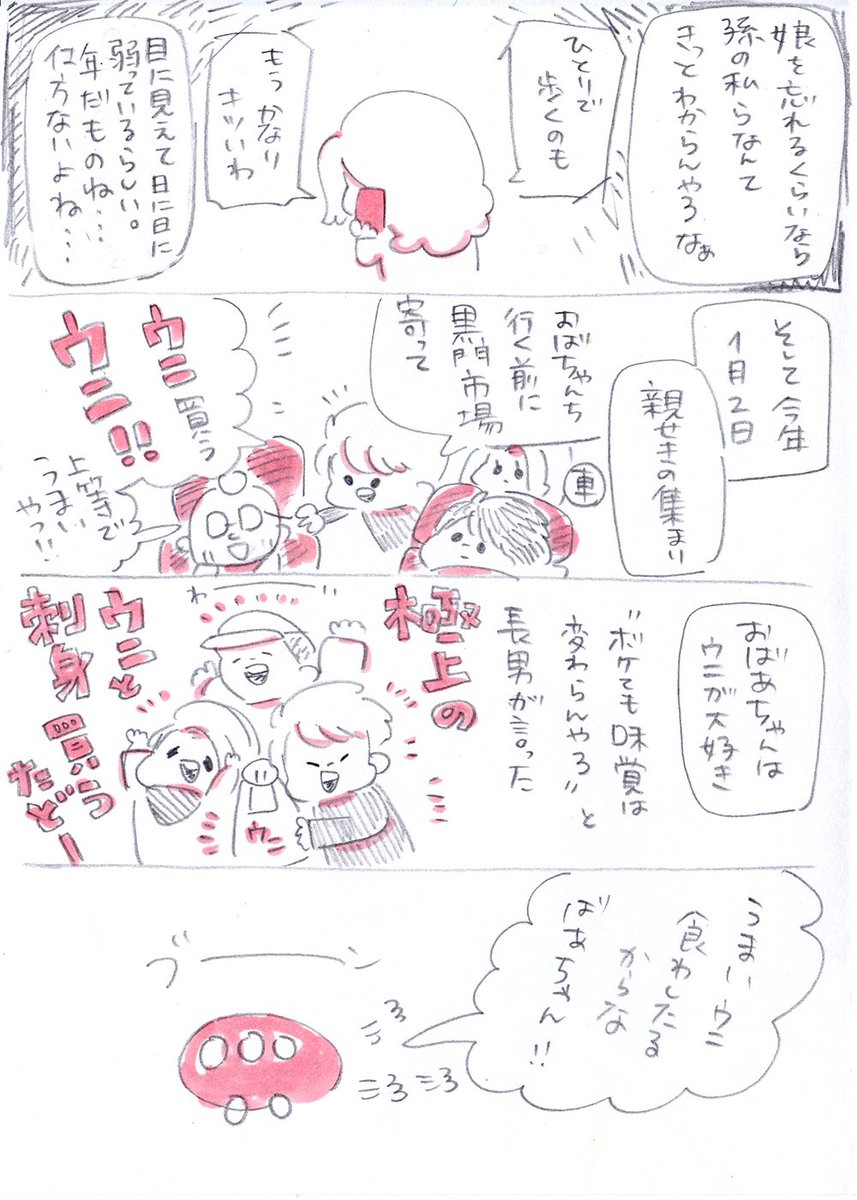 娘を忘れるくらいなら
孫の私らなんて
きっとわからんやろなぁ
ひとりで
歩くのも
もう かなり
キツいわ
目に見えて 日に日に
弱っているらしい。
年だものね…
仕方ないよね…
そして 今年
1月2日
親せきの集まり
車
おばちゃんち
行く前に
黒門市場
寄って
ウニ買う
ウニ!!
上等で
うまい
やつ!!
おばあちゃんは
ウニが大好き
"ボケても味覚は
変わらんやろ"と
長男が言った
極上の
ウニと
刺身
買う
たどー
わ
ウニ
うまいウニ
食わしたる
からな
ばあちゃん!!
ブーーン